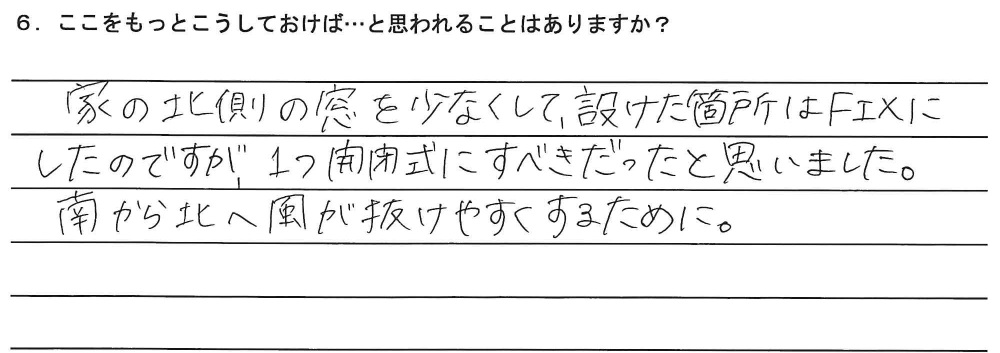 ６．ここをもっとこうしておけば…と思われることはありますか？
家の北側の窓を少なくして、設けた箇所はFIXに
したのですが、1つ開閉式にすべきだったと思いました。
南から北へ風が抜けやすくするために。